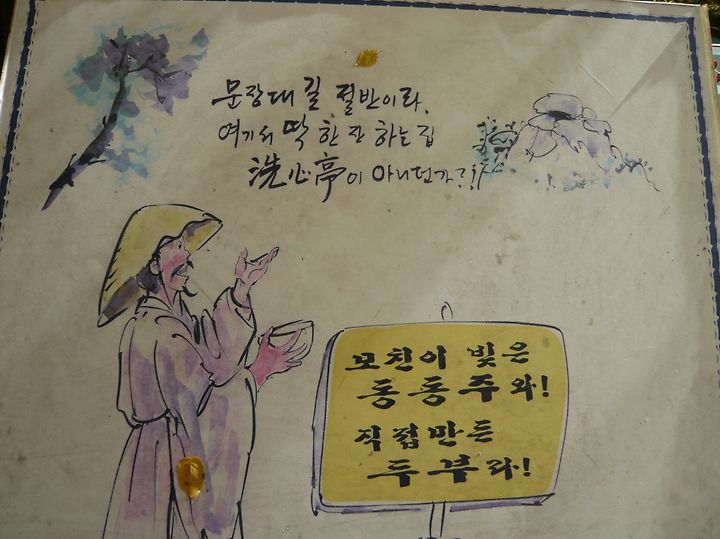 문장대 길 절반이라,
여기서 딱 한 잔 하는 집
洗心亭이 아니던가?!
모친이 빚은
동동주와!
직접만든
두부라!